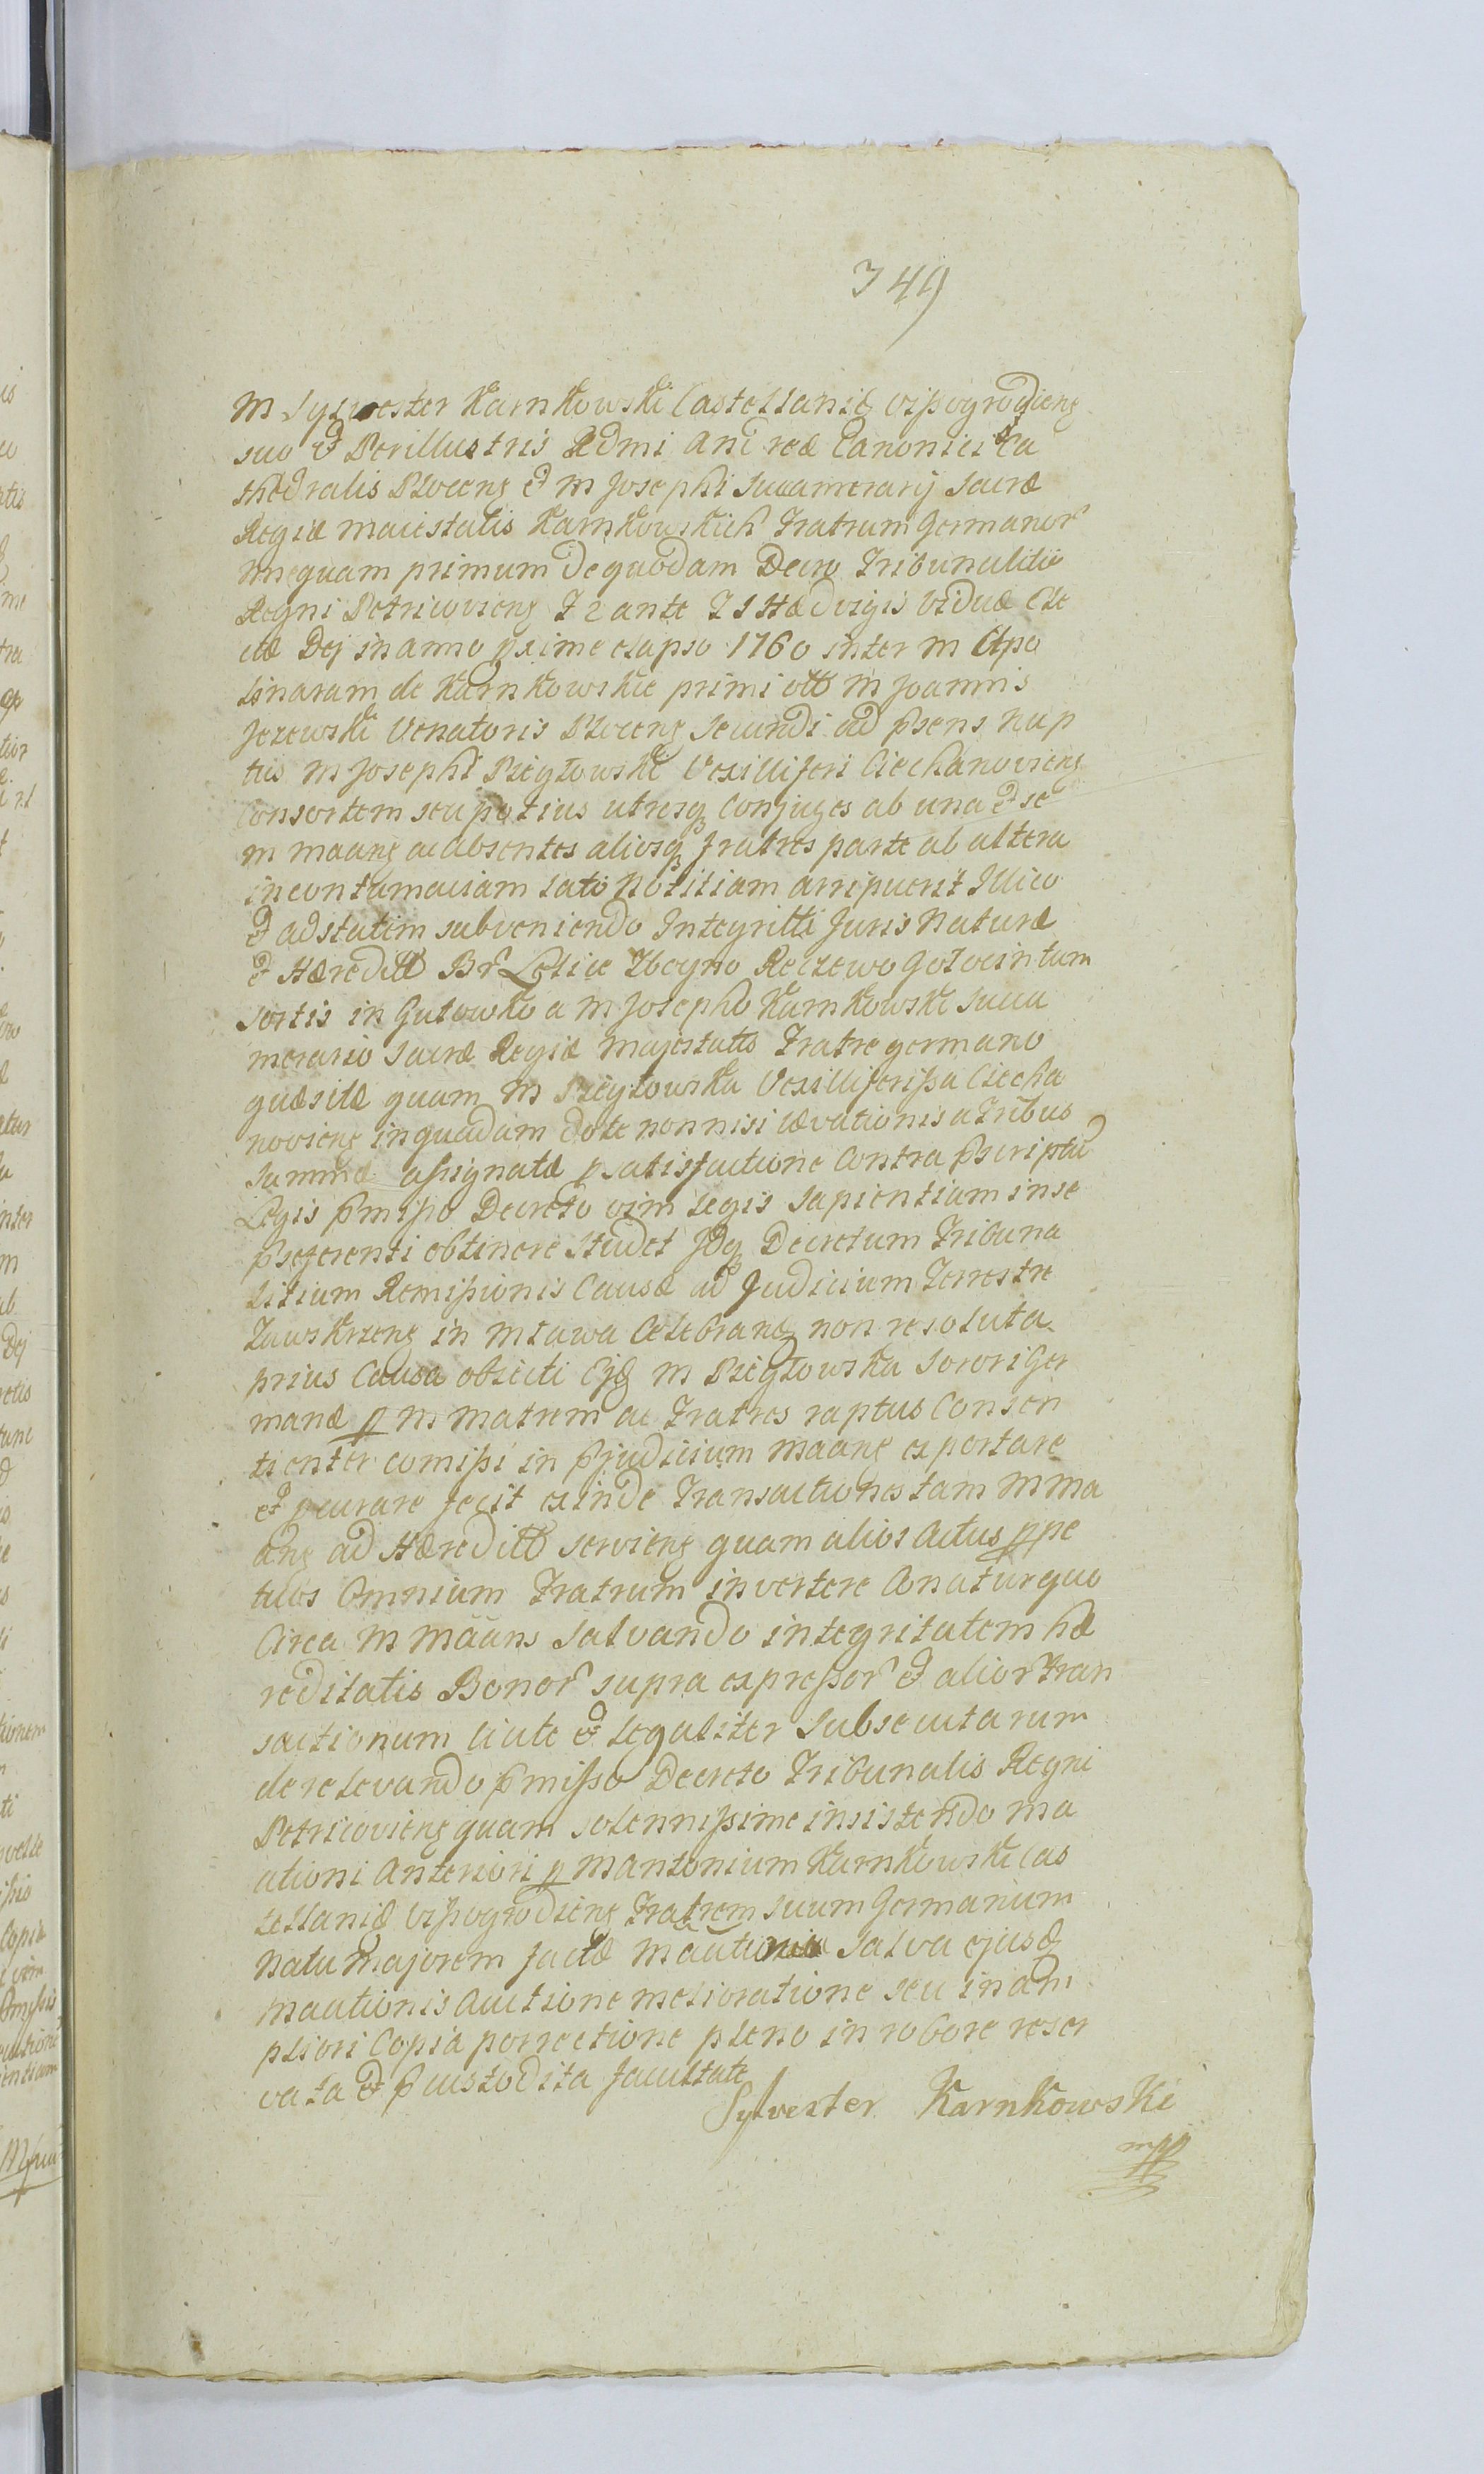 349
M Sylvester Karnkowski Castellanid Vissogrodieng
suo et Perillustris Rdmi Andreæ Canonici Ca
thedralis Ploceng et M Josephi Succamerarij Sacræ
Regiæ Maiestatis Karnkowskich Fratrum Germanor
nmę quam primum de quodam Decro Tribunalitio
Regni Petricovieng F 2 ante F S Hædvigis Viduæ Ele
ctæ Dej in anno pxime elapso 1760 inter M Apo
linaram de Karnkowskie primi ott M Joannis
Jezewski Venatoris Ploceng Secundi ad psens nup
tus M Josephi Psczołowski Vexilliferi Ciechanovieng
Consortem seu potius utrosq Conjuges ab una et se
M maang ac absentes aliosq fratres parte ab altera
in contumaciam lato notitiam arripuerit Illico
et adstatim subveniendo Integritti Juris Naturæ
et Hæreditt Br Lelice Zbogno Reczewo Golocin tum
sortis in Gulowko a M Josepho Karnkowski Succa
merario Sacræ Regiæ Majestatis Fratre germano
quæsitæ quam M Vexilliferissa Ciecha
novieng in quadam dote non nisi ævationis a Tribus
summæ assignatæ psatisfactione Contra pscriptu
Legis pmisso Decreto vim legis sapientiam in se
pseferenti obtinere studet Jdq Decretum Tribuna
litium Remissionis Causæ ad Judicium Terrestre
Zawskrzeng in Mlawa Celebrand non resoluta
prius Causa obiecti Ejd M Sorori Ger
manæ p M Matrem ac Fratres raptus Consen
tienter comissi in pjudicium Maang exportare
et pcurare fecit exinde Transactiones tam M ma
ang ad Hæreditt servieng quam alios Actus ppe
tuos Omnium Fratrum invertere Conatur quo
Circa M mããns salvando integritatem hæ
reditatis Bonor supra expressor et alior Tran
sactionum licite et legaliter subsecutarum
de relevando pmisso Decreto Tribunalis Regni
Petricovieng quam solennissime insistendo ma
ationi Anteriori p M Antonium Karnkowski Cas
tellanid Vissogrodieng Fratrem suum Germanum
Natu Majorem factæ mãationi salva ejusd
maationis Auctione melioratione seu in am
pliori Copia porrectione pleno in robore reser
vata et pcustodita facultate
Sylvester Karnkowski
mpp